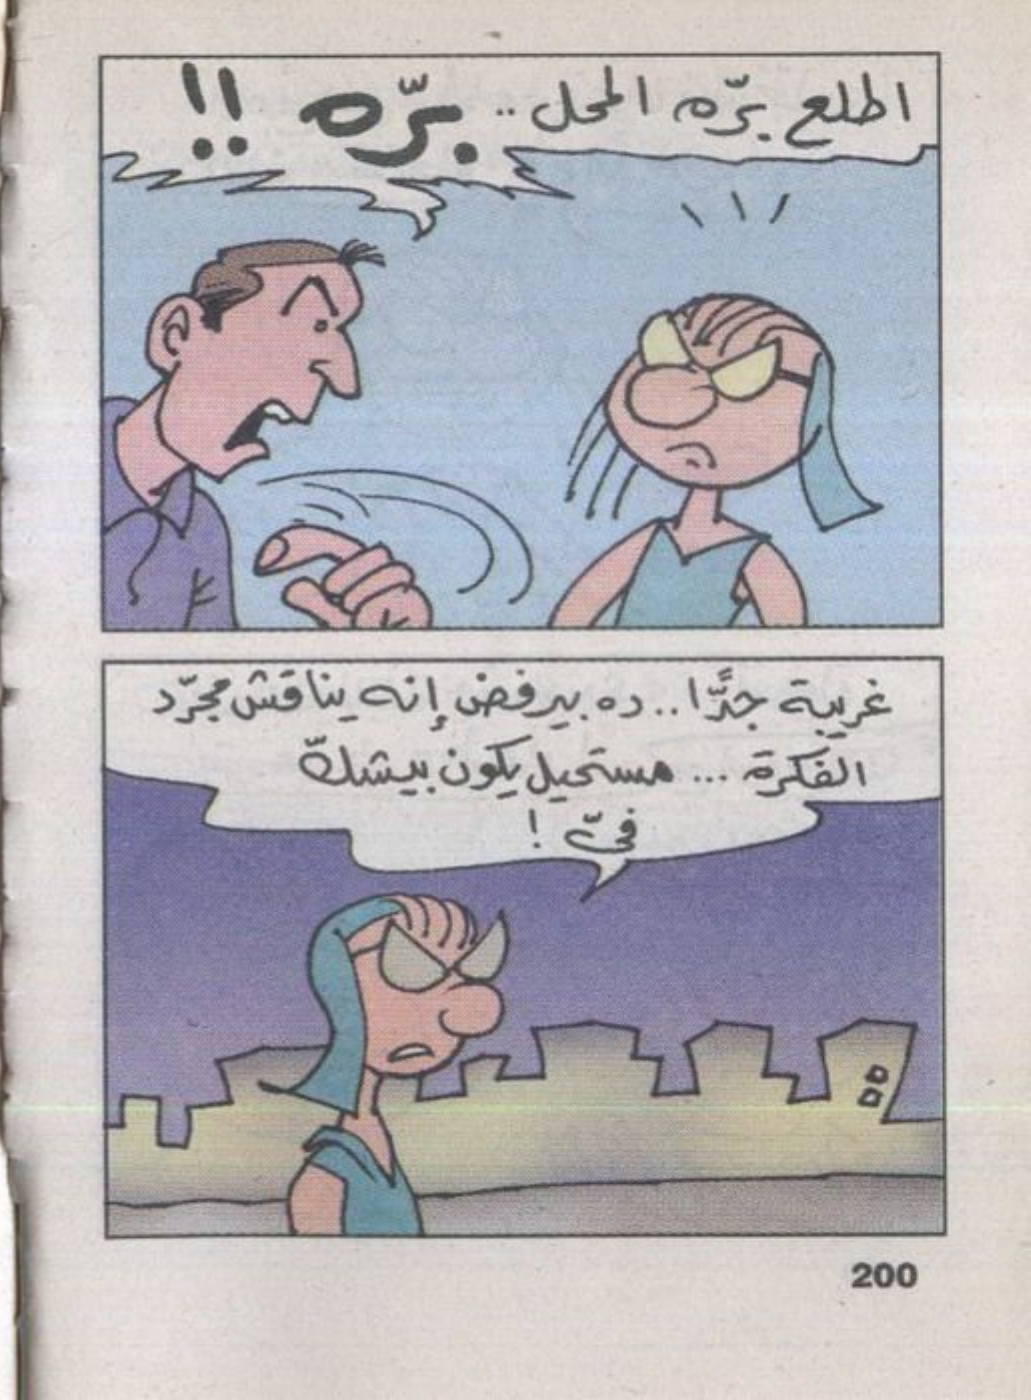 اطلع برّه المحل.. برّه !!
غريبة جدًّا.. ده بيرفض إنه يناقش مجرّد
الفكرة ... مستحيل يكون بيشكّ
فىّ !
200